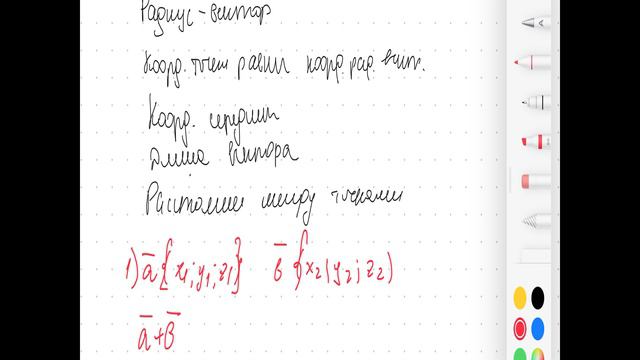 Радиус-вектор
Коорд. точки равны коорд. рад. вект.
Коорд. середины
Длина вектора
Расстояние между точками
1) a̅{x₁; y₁; z₁} b̅{x₂; y₂; z₂}
a̅+b̅